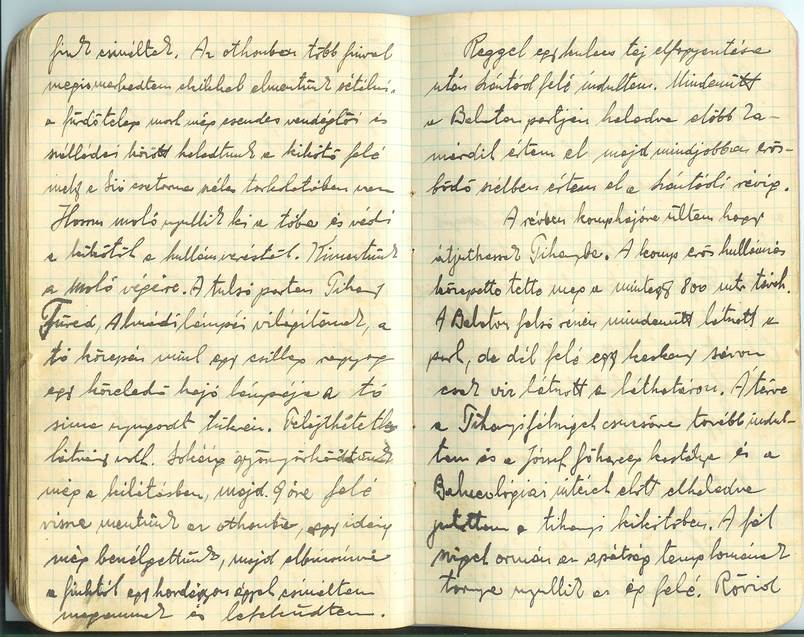 fiuk csináltak. Az otthonban több fiuval
megismerkedtem ezekkel elmentünk sétálni,
a fürdőtelep most még csendes vendéglői és
szállodái között haladtunk a kikötő felé
mely a Sió csatorna széles torkolatában van
Hosszu moló nyulik ki a tóba és védi
a kikötőt a hullámveréstől. Kimentünk
a moló végére. A tulsó parton Tihany
Füred, Almádi lámpái világítanak, a
tó közepén mint egy csillag ragyog
egy közeledő hajó lámpája a tó
sima nyugodt tükrén. Felejthetetlen
látvány volt. Sokáig gyönyörködtünk
még a kilátásban, majd 9 óra felé
vissza mentünk az otthonba, egy ideig
még beszélgettünk, majd elbucsuzva
a fiuktól egy hordágyon ággyal csináltam
magamnak és lefeküdtem.
Reggel egy kulacs tej elfogyasztása
után Szántód felé indultam. Mindenütt
a Balaton partján haladva előbb Za-
márdit értem el majd mindjobban erős-
bödő szélben értem el a szántódi révig.
A révben komphajóra ültem hogy
átjuthassak Tihanyba. A komp erős hullámzás
közepette tette meg a mintegy 800 mtr távot.
A Balaton felső részén mindenütt látszott a
part, de dél felé egy keskeny sávon
csak víz látszott a láthatáron. Átérve
a Tihanyi félsziget csucsára tovább indul-
tam és a József főherceg kastélya és a
Balneológiai intézet előtt elhaladva
jutottam a tihanyi kikötőben. A fél
sziget ormán az apátság templomának
tornya nyulik az ég felé. Rövid